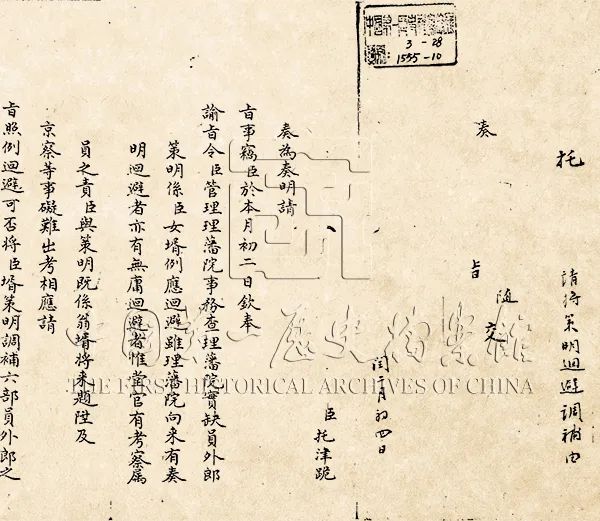 3-28
1555-10
托
請將策明迴避調補由
奏
旨
隨
交
閏二月初四日
臣托津跪
奏為奏明請
旨事竊臣於本月初二日欽奉
諭旨令臣管理理藩院事務查理藩院實缺員外郎
策明係臣女壻例應迴避雖理藩院向來有奏
明迴避者亦有無庸迴避者惟堂官有考察屬
員之責臣與策明既係翁壻將來題陞及
京察等事礙難出考相應請
旨照例迴避可否將臣壻策明調補六部員外郎之
中國第一歷史檔案館
THE FIRST HISTORICAL ARCHIVES OF CHINA